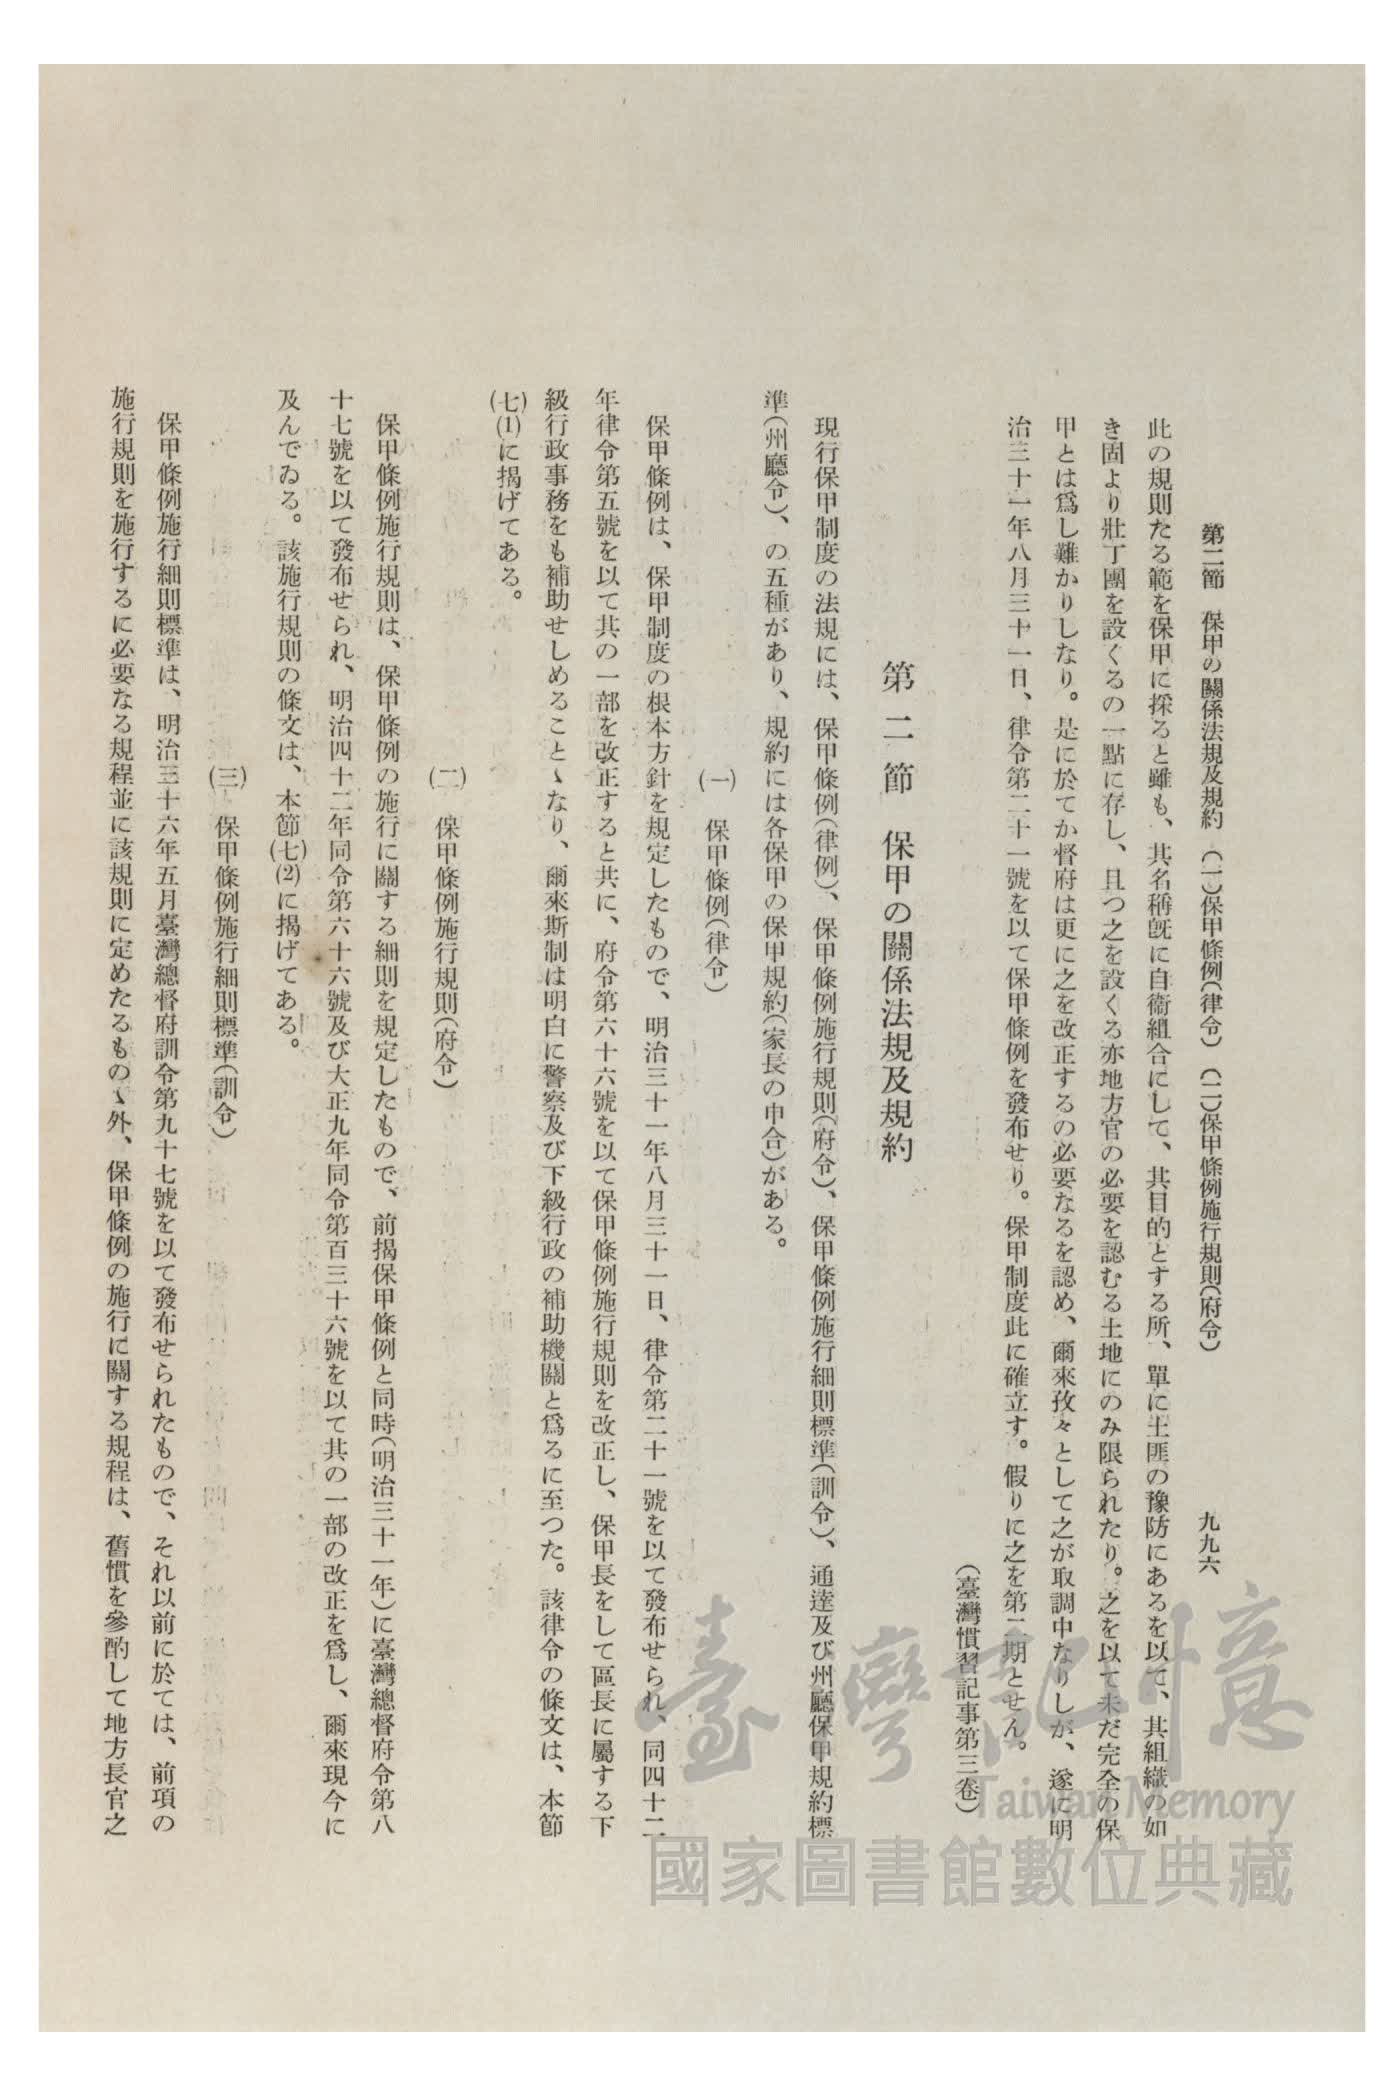 第二節　保甲の關係法規及規約　(一)保甲條例(律令)　(二)保甲條例施行規則(府令)　九九六
此の規則たる範を保甲に採ると雖も、其名稱旣に自衞組合にして、其目的とする所、單に土匪の豫防にあるを以て、其組織の如
き固より壯丁團を設くるの一點に存し、且つ之を設くる亦地方官の必要を認むる土地にのみ限られたり。之を以て未だ完全の保
甲とは爲し難かりしなり。是に於てか督府は更に之を改正するの必要なるを認め、爾來孜々として之が取調中なりしが、遂に明
治三十一年八月三十一日、律令第二十一號を以て保甲條例を發布せり。保甲制度此に確立す。假りに之を第二期とせん。
(臺灣慣習記事第三卷)
第二節　保甲の關係法規及規約
現行保甲制度の法規には、保甲條例(律例)、保甲條例施行規則(府令)、保甲條例施行細則標準(訓令)、通達及び州廳保甲規約標
準(州廳令)、の五種があり、規約には各保甲の保甲規約(家長の申合)がある。
(一)　保甲條例(律令)
保甲條例は、保甲制度の根本方針を規定したもので、明治三十一年八月三十一日、律令第二十一號を以て發布せられ、同四十二
年律令第五號を以て其の一部を改正すると共に、府令第六十六號を以て保甲條例施行規則を改正し、保甲長をして區長に屬する下
級行政事務をも補助せしめることゝなり、爾來斯制は明白に警察及び下級行政の補助機關と爲るに至つた。該律令の條文は、本節
(七)(1)に揭げてある。
(二)　保甲條例施行規則(府令)
保甲條例施行規則は、保甲條例の施行に關する細則を規定したもので、前揭保甲條例と同時(明治三十一年)に臺灣總督府令第八
十七號を以て發布せられ、明治四十二年同令第六十六號及び大正九年同令第百三十六號を以て其の一部の改正を爲し、爾來現今に
及んでゐる。該施行規則の條文は、本節(七)(2)に揭げてある。
(三)　保甲條例施行細則標準(訓令)
保甲條例施行細則標準は、明治三十六年五月臺灣總督府訓令第九十七號を以て發布せられたもので、それ以前に於ては、前項の
施行規則を施行するに必要なる規程並に該規則に定めたるものゝ外、保甲條例の施行に關する規程は、舊慣を參酌して地方長官之
臺灣記憶
Taiwan Memory
國家圖書館數位典藏